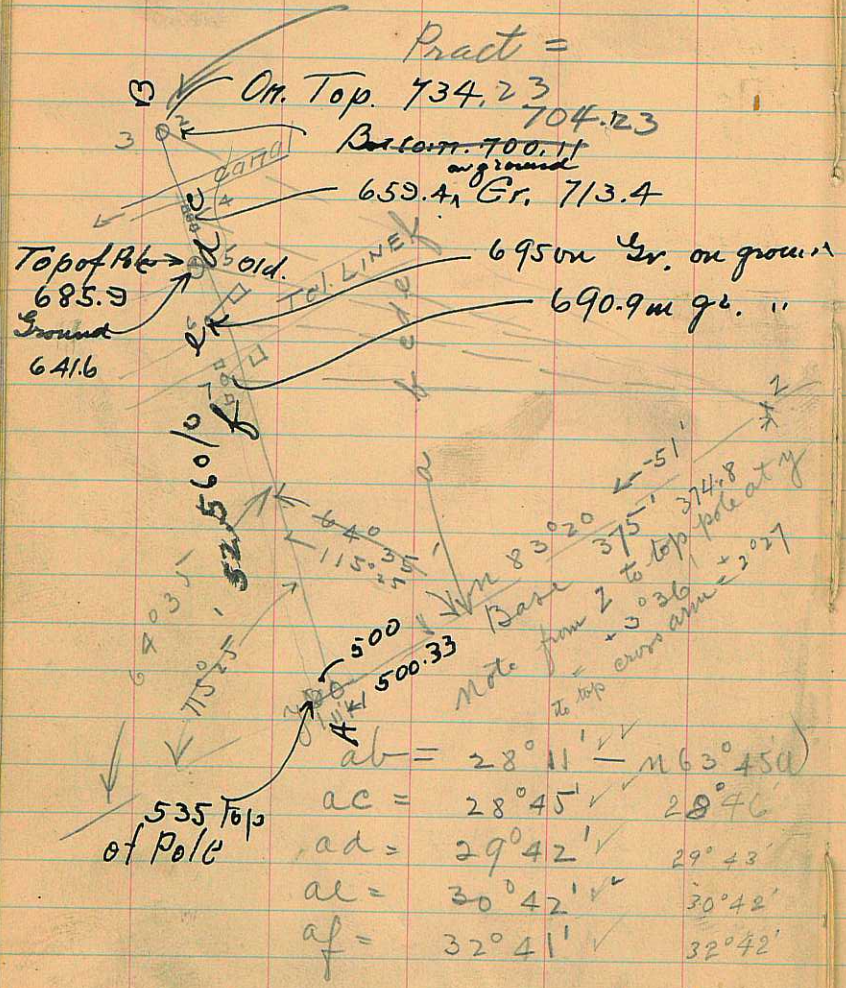 Pract =
B
On. Top. 734.23
704.23
3
2
Bottom. 700.11
on ground
canal
c
4
659.4 Gr. 713.4
Top of Pole
685.9
Ground
641.6
d
5
Old.
Tel. LINE
695 on Gr. on ground
690.9 on gr. "
e
7
f
b c d e f
a
52,560/0
1
-51'
64° 35'
115° 25'
n 83° 20
Base 375' 374.8
Note from 1 to top pole at y
= + 3° 36'
to top cross arm = + 2° 27
64° 35'
115° 25'
500
500.33
A
535 Top
of Pole
ab = 28° 11' — n 63° 45
ac = 28° 45' 28° 46'
ad = 29° 42' 29° 43'
ae = 30° 42' 30° 42'
af = 32° 41' 32° 42'